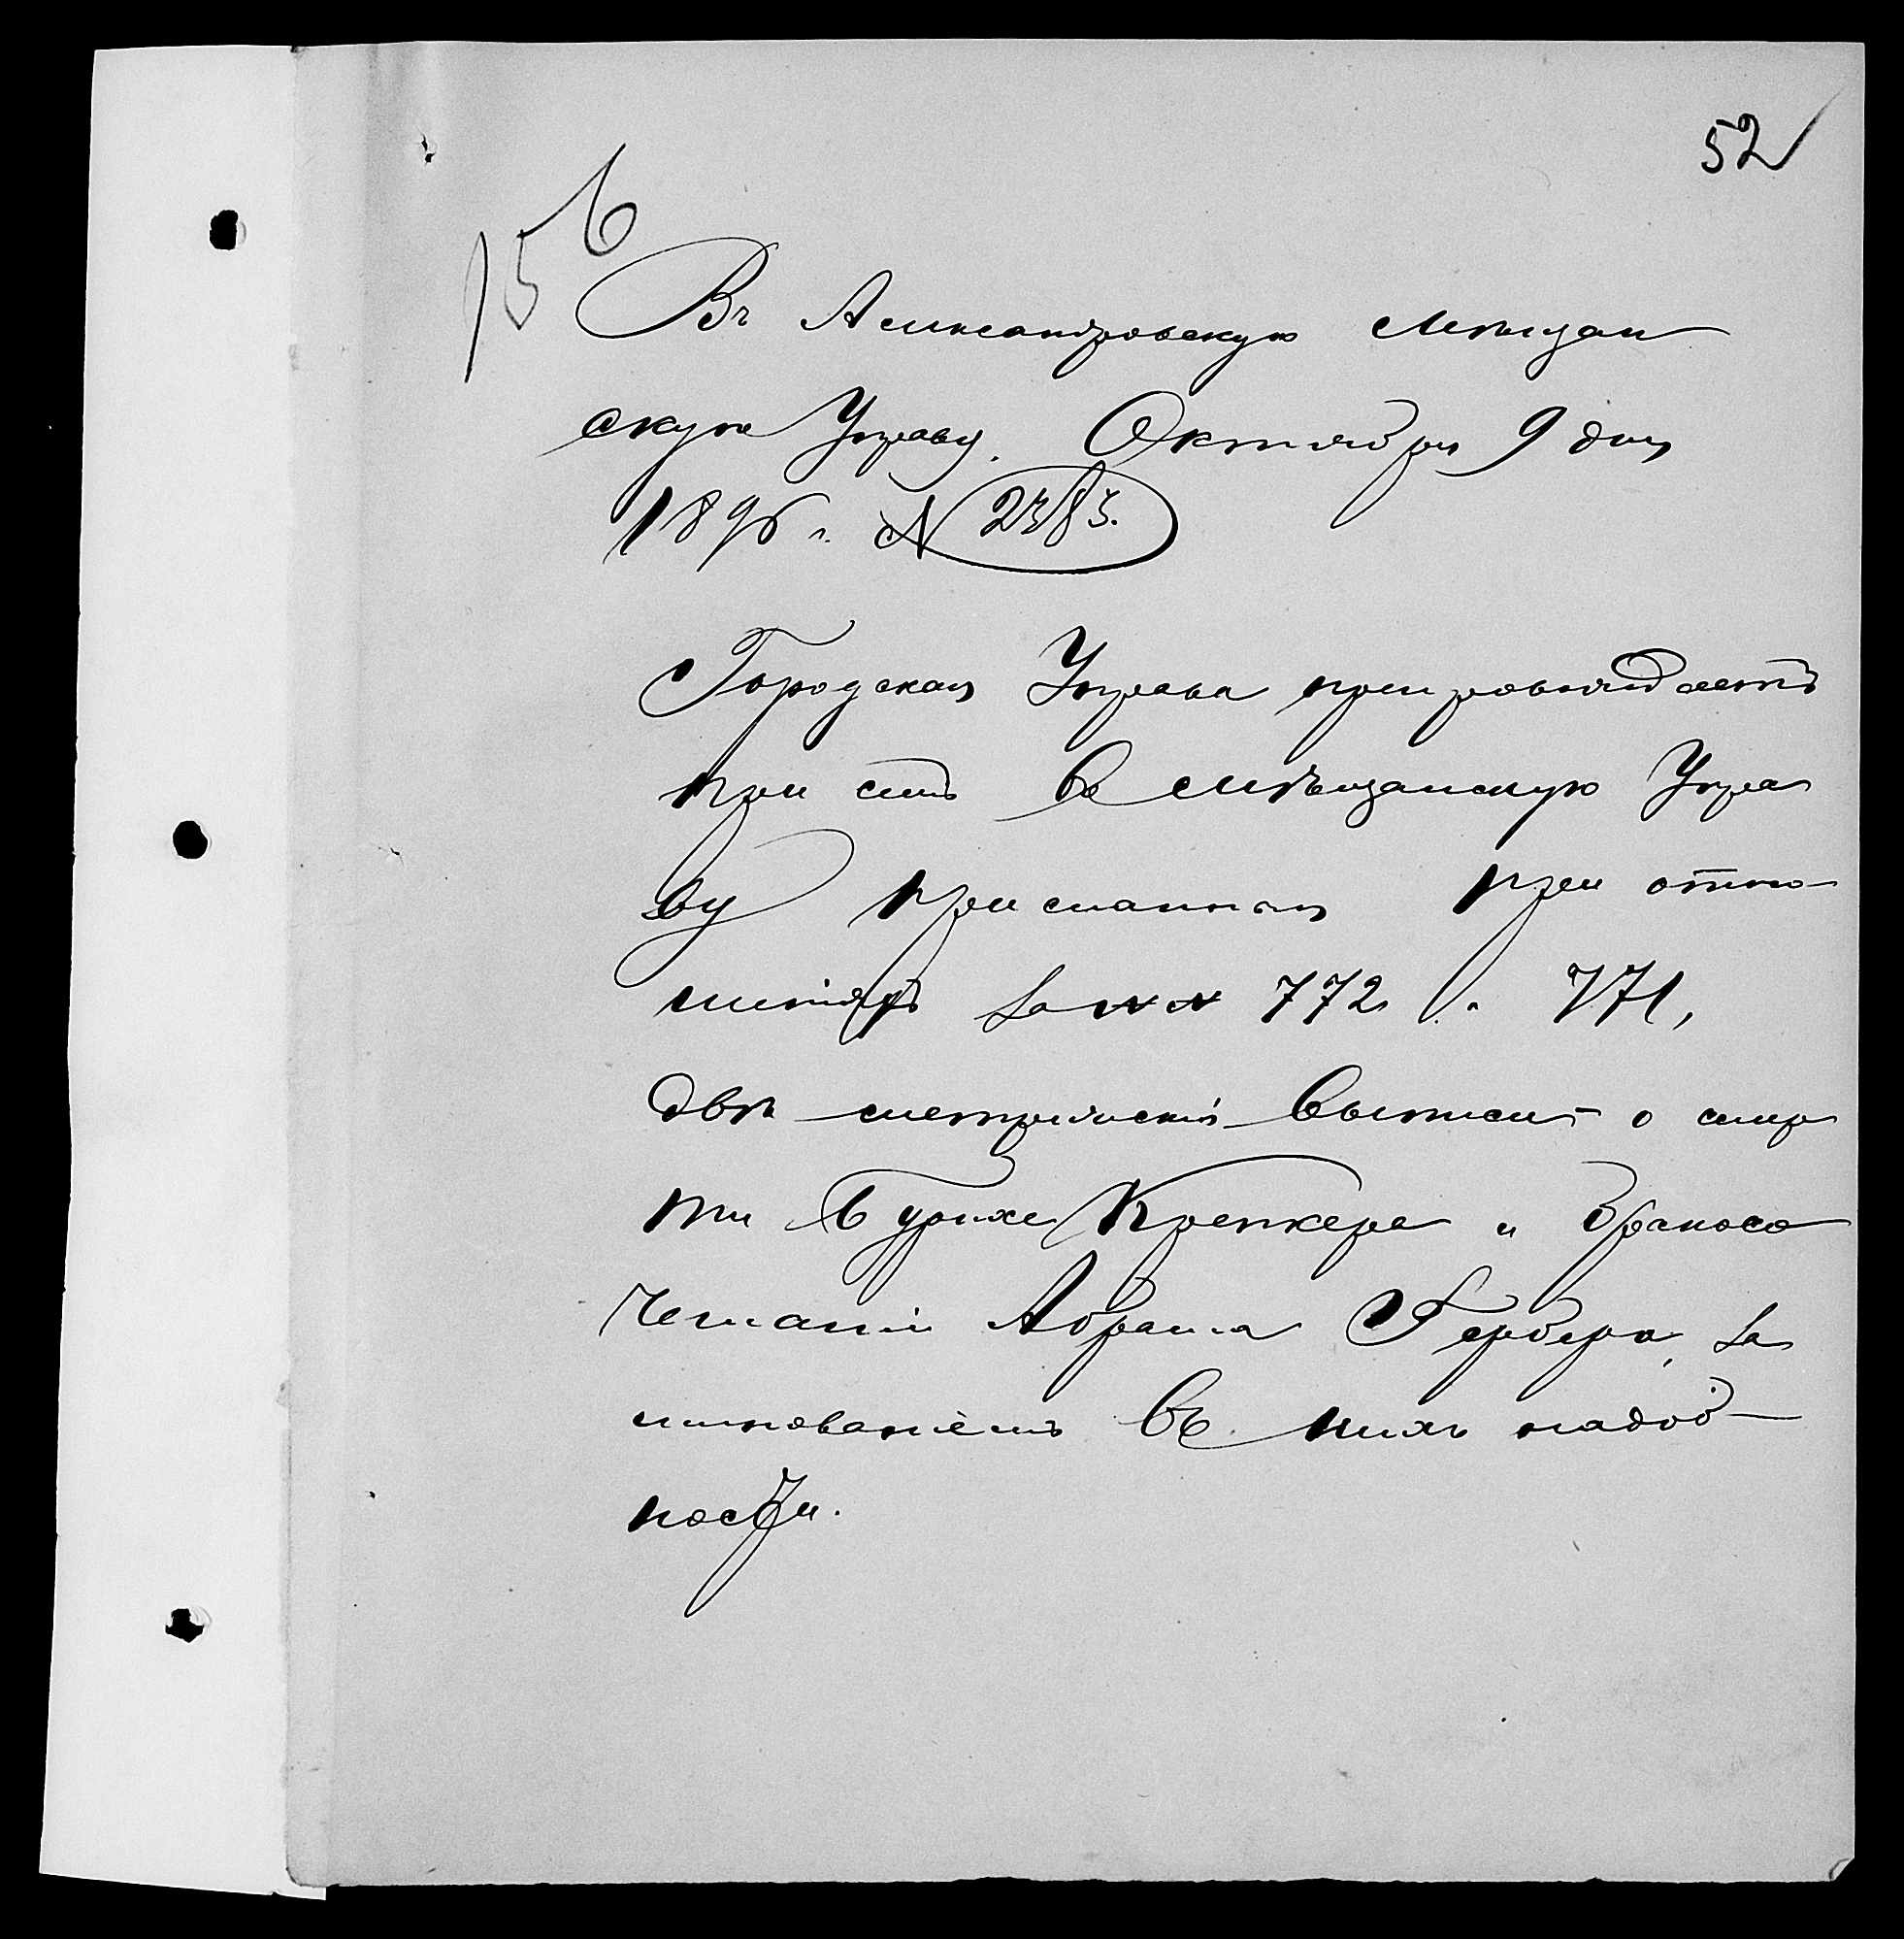 52
156
Въ Александровскую Мѣщан
скую Управу. Октября 9 дня
1896 г. № 2383.
Городская Управа препровождаетъ
при семъ въ Мѣщанскую Упра
ву присланныя при отно-
шеніяхъ за №№ 772 и 771,
двѣ метрическія выписи о смер
ти Крепкера и бракосо
четаніи Абрама Гербера, за
минованіемъ въ нихъ надоб-
ности.